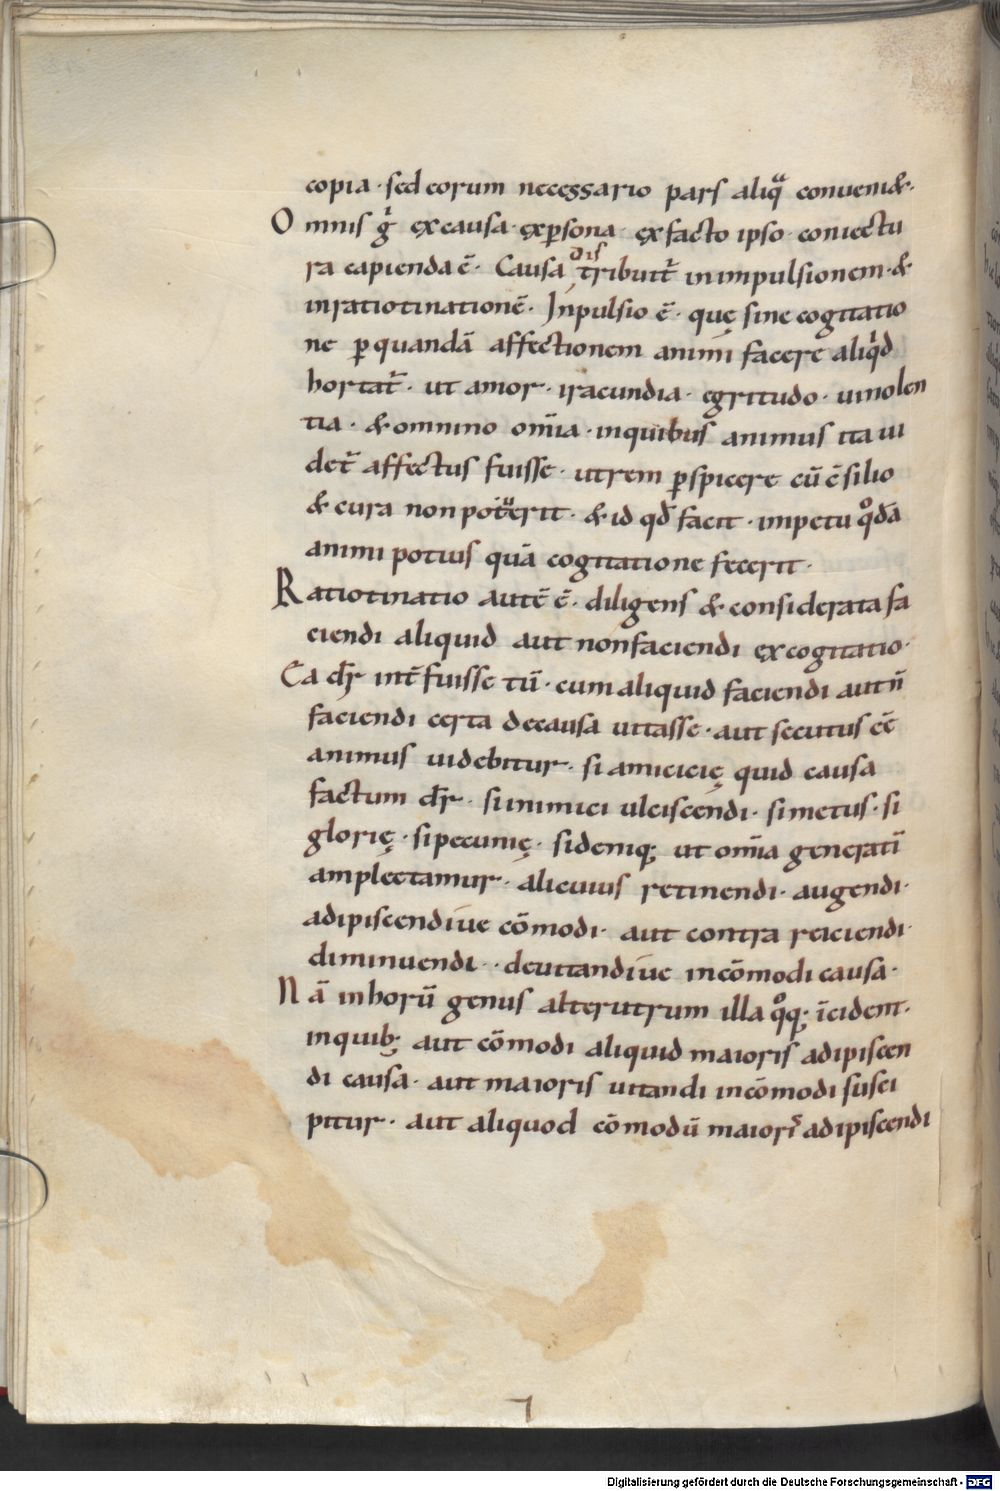 copia · sed eorum necessario pars aliqͣ conueni&·
Omnis gͥ ex causa · ex ꝑsona · ex facto ipso coniectu
ra capienda ē · Causa distribuit᷑ in inpulsionem · &
in ratiotinationē · Inpulsio ē · quę sine cogitatio
ne ꝑ quandā affectionem animi facere aliqͥd
hortat᷑ · ut amor · iracundia · egritudo · uinolen
tia · & omnino om̄ia · in quibus animus ita ui
det᷑ affectus fuisse · ut rem ꝑspicere cū c̄silio
& cura non potuerit · & id qd̄ facit · impetu qͦdā
animi potius quā cogitatione fecerit ·
Ratiotinatio autē ē · diligens & considerata fa
ciendi aliquid aut non faciendi excogitatio ·
Ea dr̄ int᷑fuisse tū · cum aliquid faciendi aut n̄
faciendi certa de causa uitasse · aut secutus eē
animus uidebitur · si amicicię quid causa
factum dr̄ · si inimici ulciscendi · si metus · si
glorię · si pecunię · si deniq; ut om̄ia generatī
amplectamur · alicuius retinendi · augendi ·
adipiscendi ue cōmodi · aut contra reiciendi ·
diminuendi · deuitandi ue incōmodi causa ·
Nā in horū genus alterutrum illa qͦq; īcident ·
in quib; aut cōmodi aliquid maioris adipiscen
di causa · aut maioris uitandi incōmodi susci
pitur · aut aliquod cōmodū maiorꝭ adipiscendi
Digitalisierung gefördert durch die Deutsche Forschungsgemeinschaft - DFG